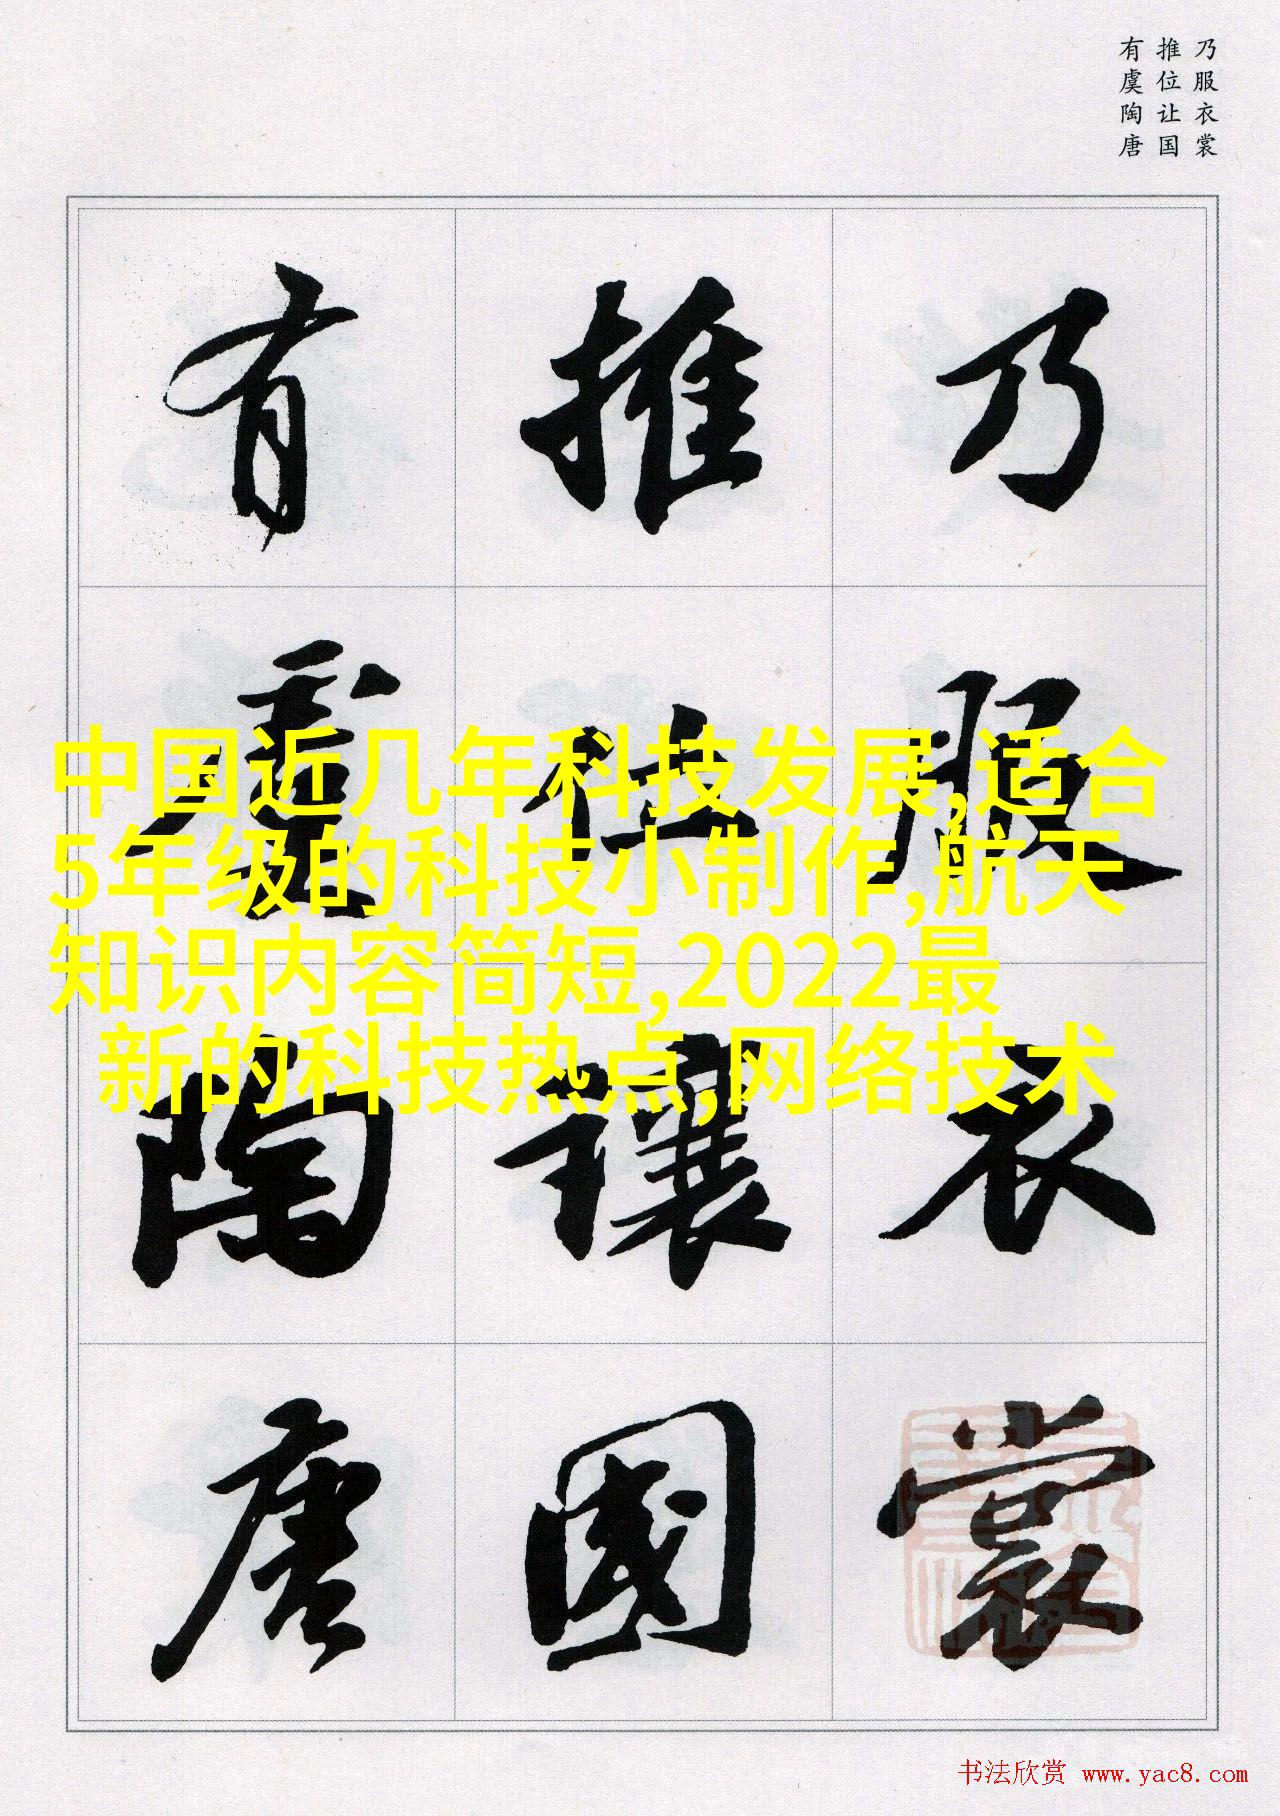 乃服衣裳
推位让国
有虞陶唐
乃服衣裳
推位讓國
有虞陶唐
中国近几年科技发展,适合
5年级的科技小制作,航天
知识内容简短,2022最
新的科技热点,网络技术
书法欣赏 www.yac8.com